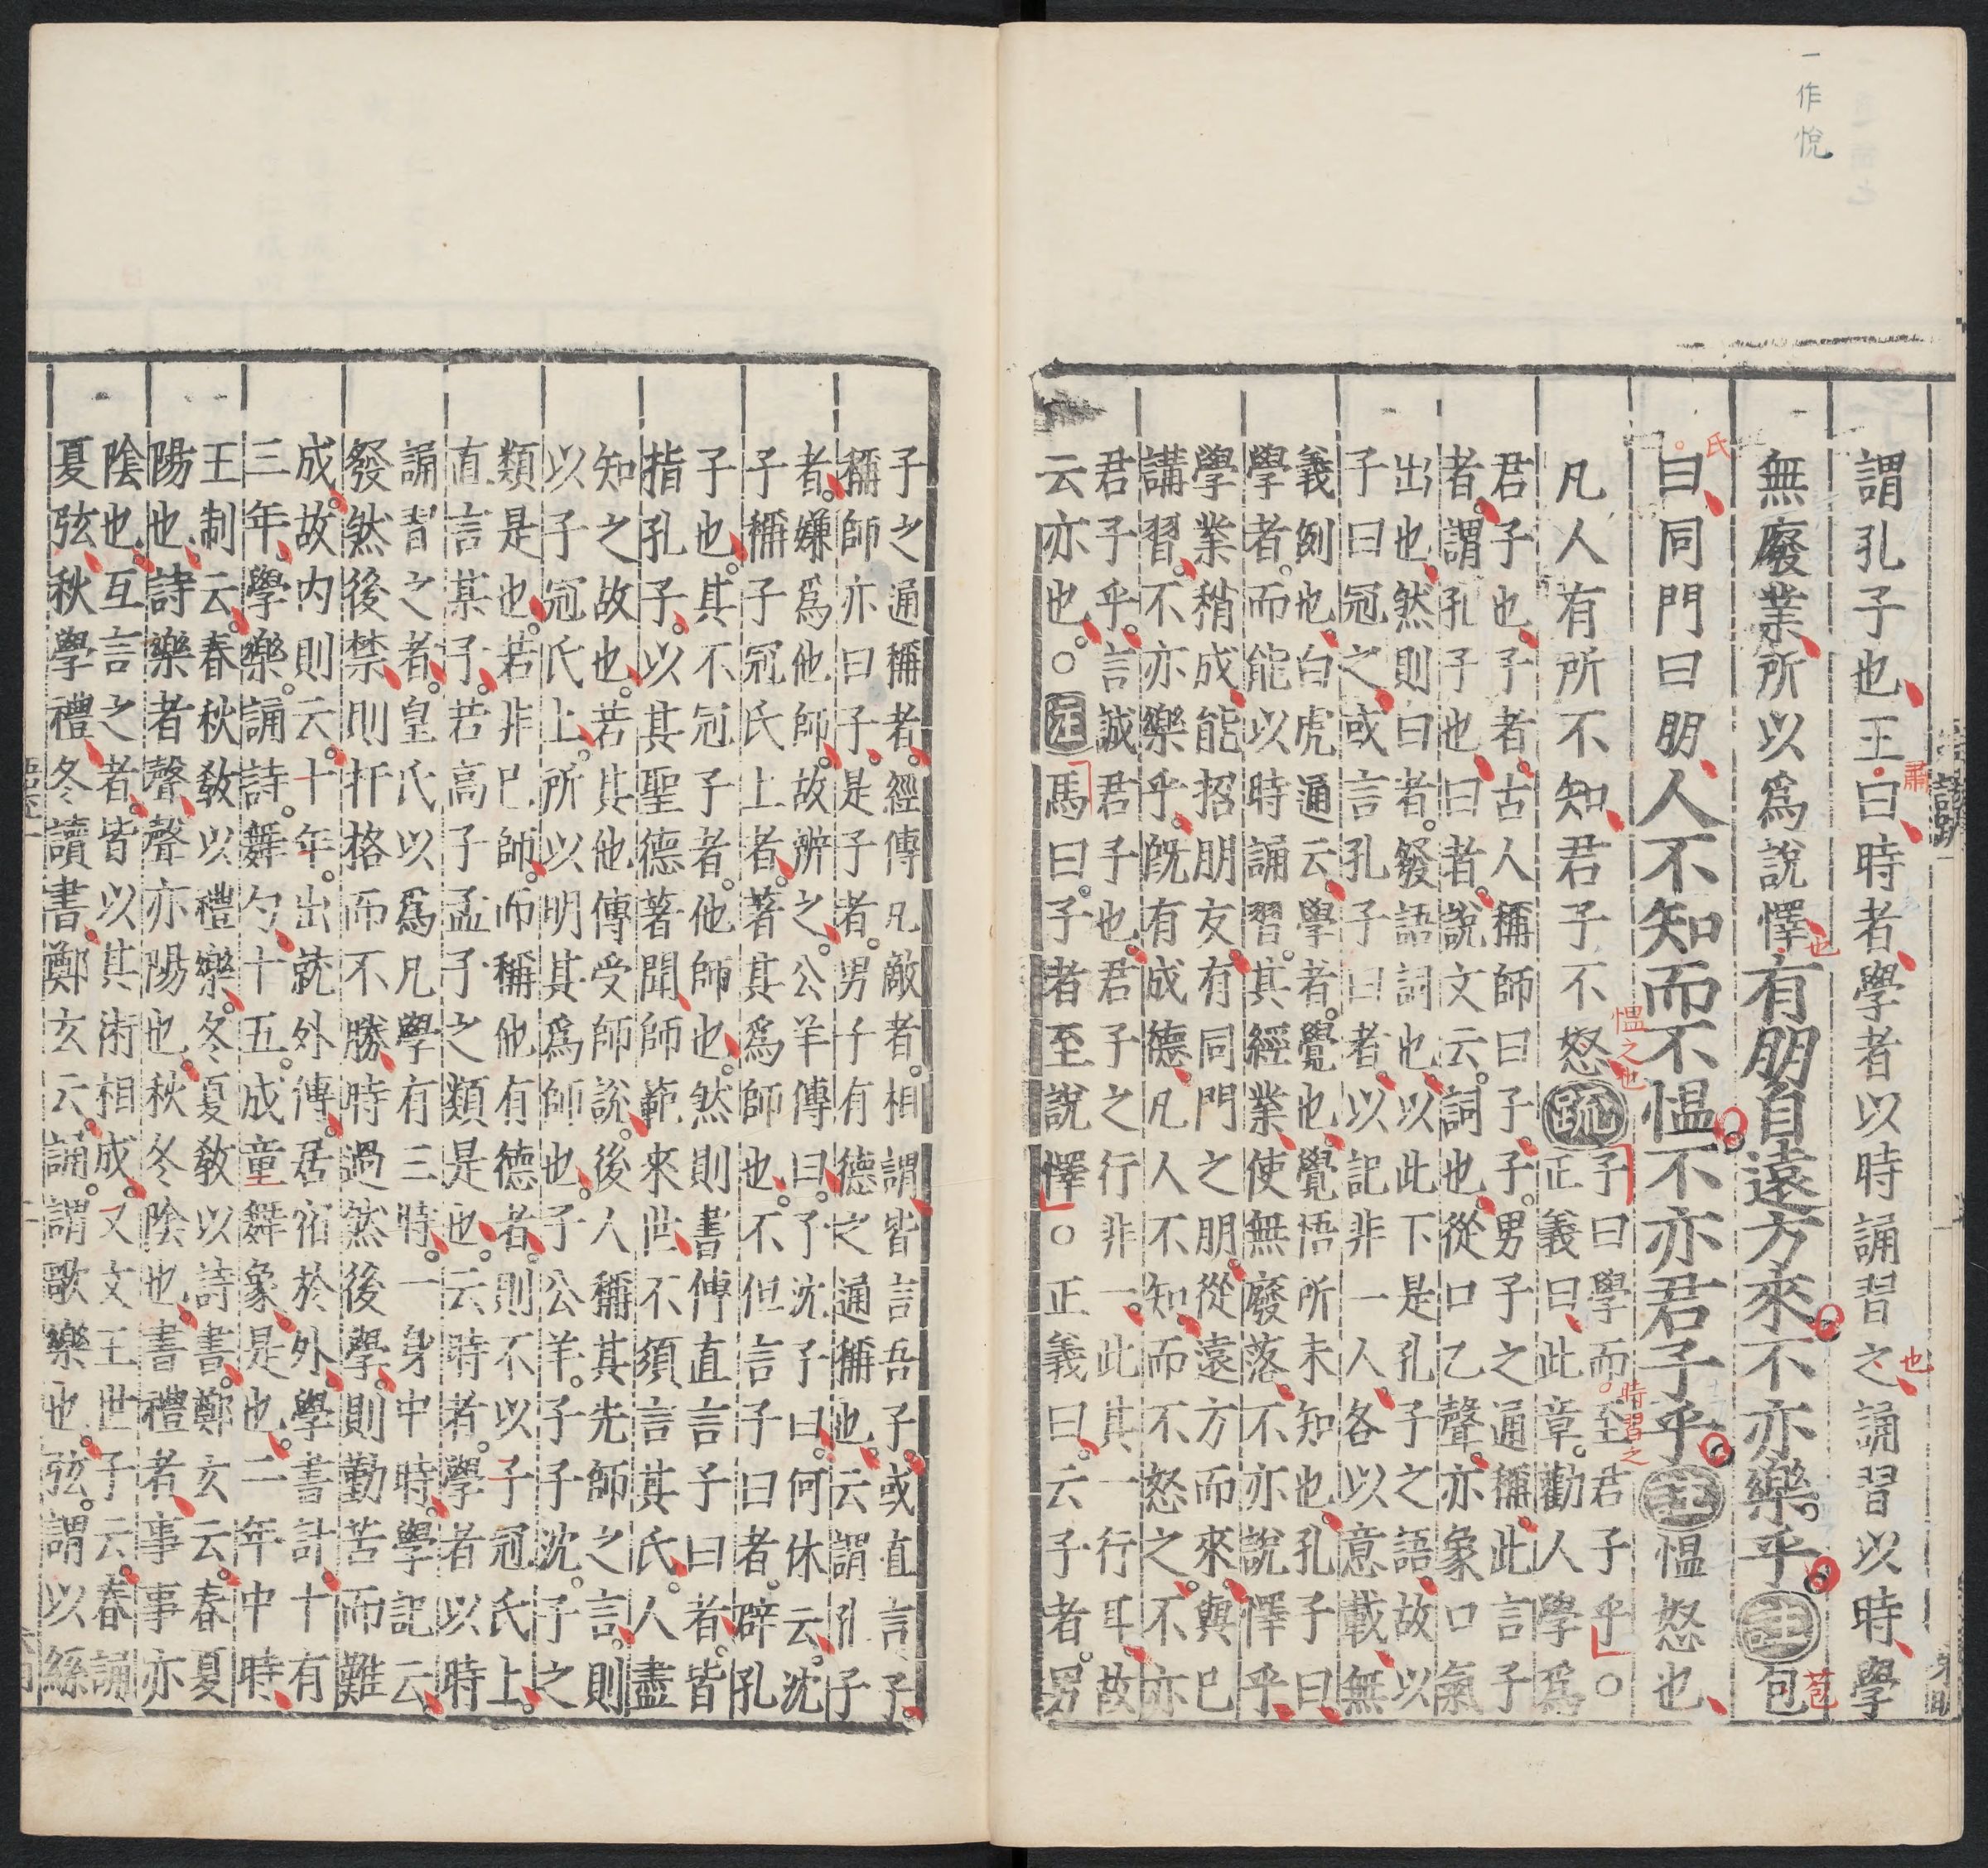 一作悅
謂孔子也王曰時者學者以時誦習之誦習以時學
肅
也
無廢業所以為說懌有朋自遠方來不亦樂乎註包
也
苞
曰同門曰朋人不知而不慍不亦君子乎註慍怒也
氏
凡人有所不知君子不怒疏
慍之也
子曰學而至君子乎○
時習之
正義曰此章勸人學爲
君子也子者古人稱師曰子子男子之通稱此言子
者謂孔子也曰者說文云詞也從口乙聲亦象口氣
出也然則曰者發語詞也以此下是孔子之語故以
子曰冠之或言孔子曰者以記非一人各以意載無
義例也白虎通云學者覺也覺悟所未知也孔子曰
學者而能以時誦習其經業使無廢落不亦說懌乎
學業稍成能招朋友有同門之朋從遠方而來與巳
講習不亦樂乎旣有成德凡人不知而不怒之不亦
君子乎言誠君子也君子之行非一此其一行耳故
云亦也○註馬曰子者至說懌○正義曰云子者男
子之通稱者經傳凡敵者相謂皆言吾子或直言子
稱師亦曰子是子者男子有德之通稱也云謂孔子
者嫌爲他師故辨之公羊傳曰子沈子曰何休云沈
子稱子冠氏上者著其爲師也不但言子曰者辟孔
子也其不冠子者他師也然則書傳直言子曰者皆
指孔子以其聖德著聞師範來世不須言其氏人盡
知之故也若其他傳受師說後人稱其先師之言則
以子冠氏上所以明其爲師也子公羊子子沈子之
類是也若非巳師而稱他有德者則不以子冠氏上
直言某子若高子孟子之類是也云時者學者以時
誦習之者皇氏以爲凡學有三時一身中時學記云
發然後禁則扞格而不勝時過然後學則勤苦而難
成故内則云十年出就外傅居宿於外學書計十有
三年學樂誦詩舞勺十五成童舞象是也二年中時
王制云春秋敎以禮樂冬夏敎以詩書鄭玄云春夏
陽也詩樂者聲聲亦陽也秋冬陰也書禮者事事亦
陰也互言之者皆以其術相成又文王世子云春誦
夏弦秋學禮冬讀書鄭玄云誦謂歌樂也弦謂以絲